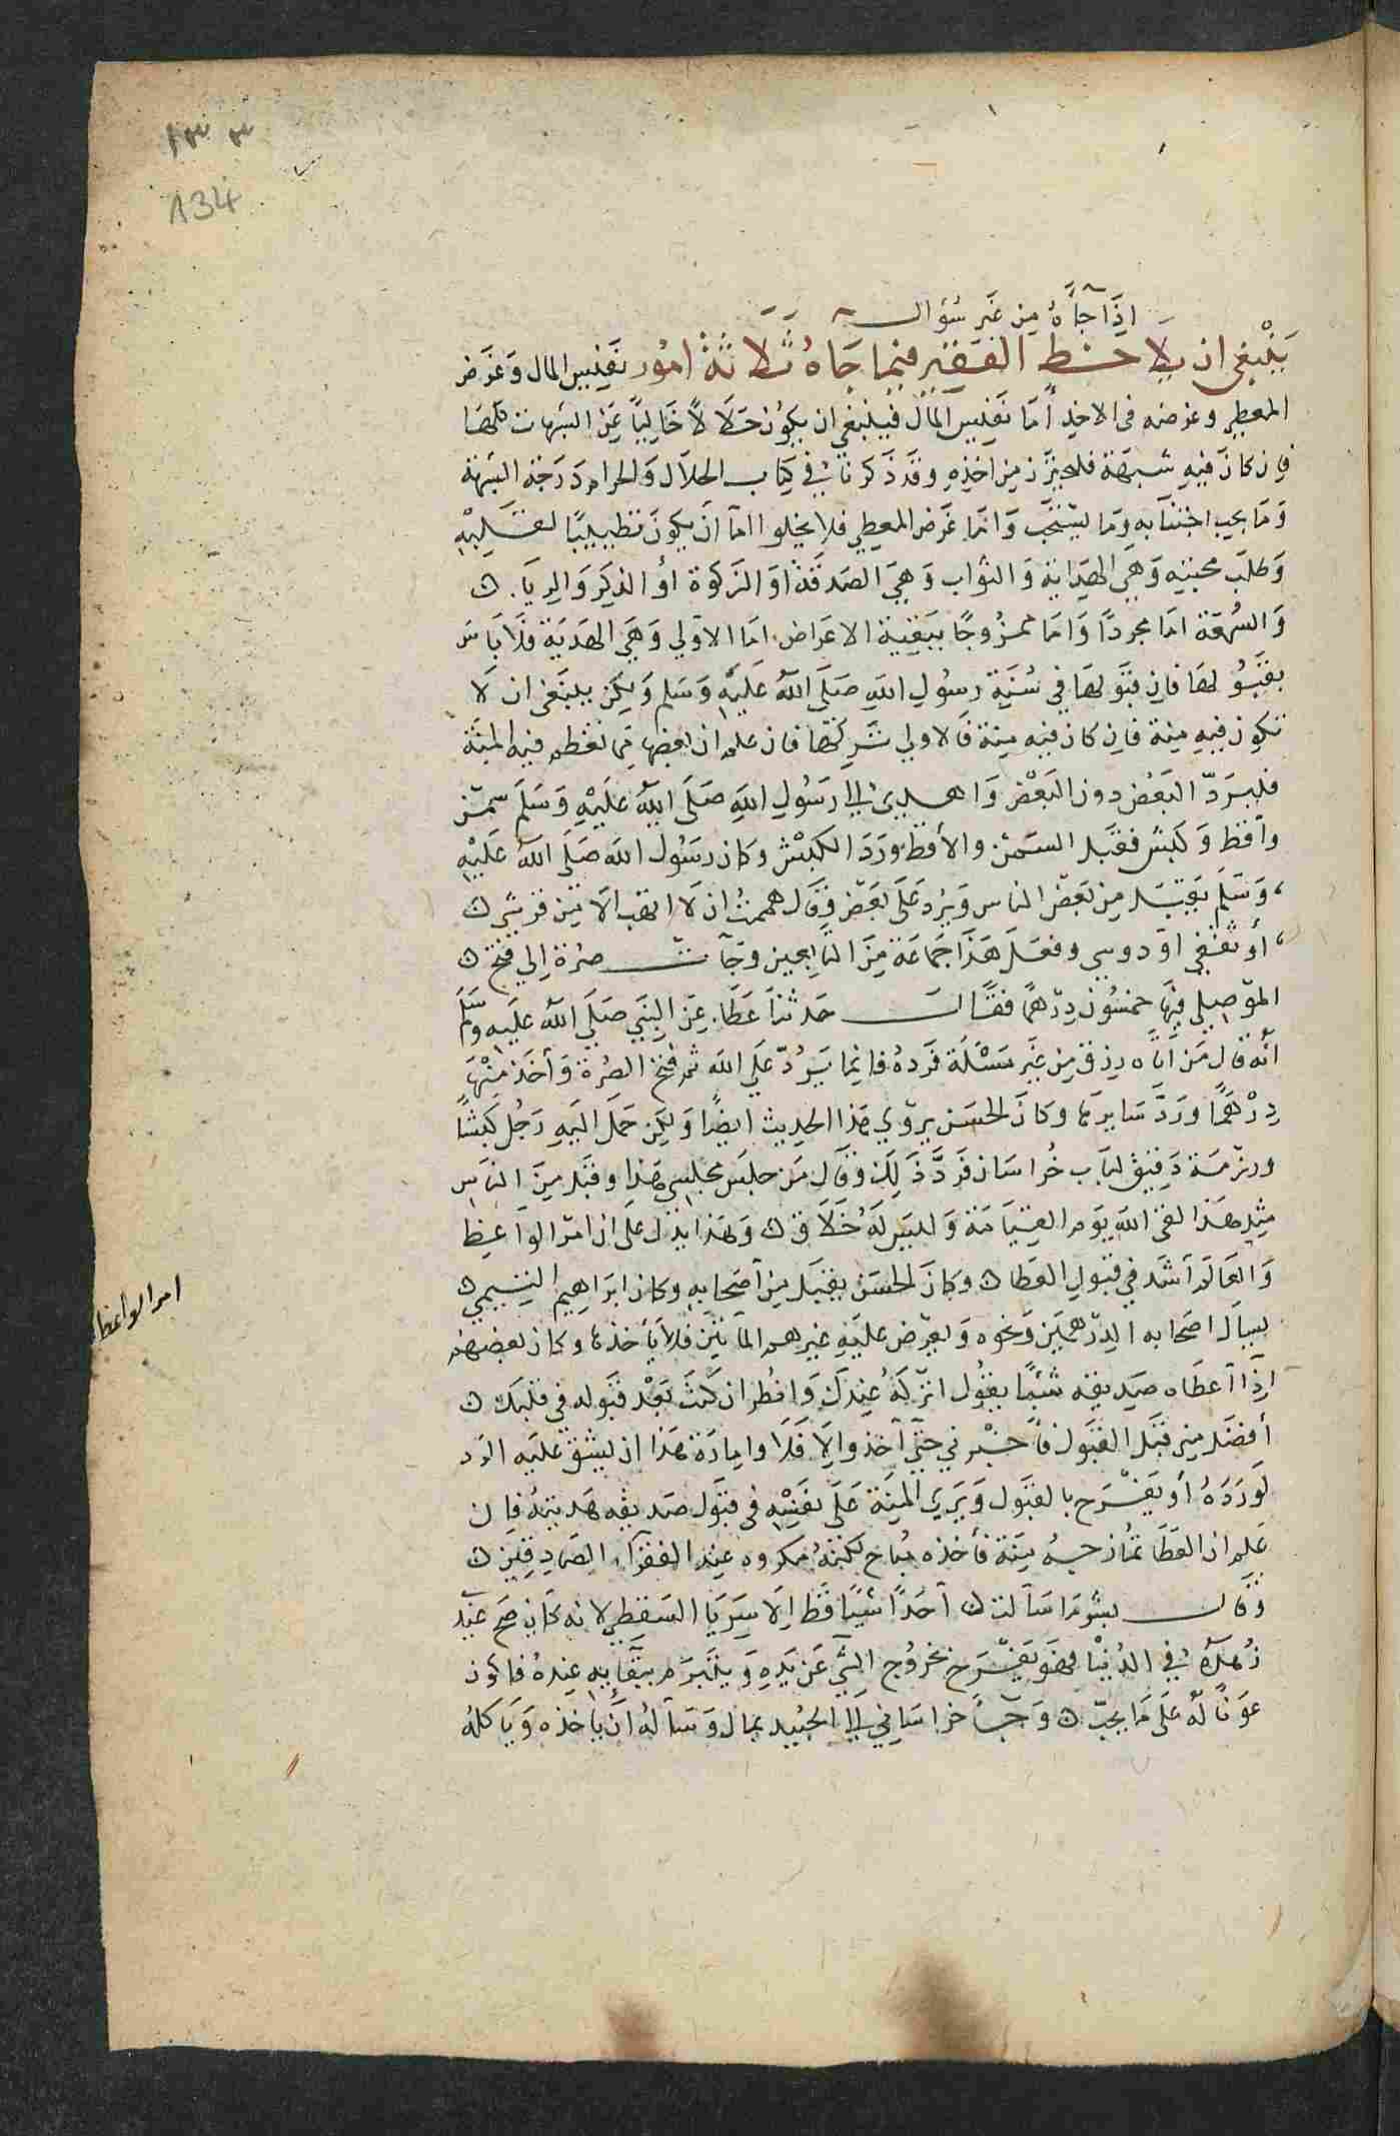 ١٣٣
134
اذا جاه من غير سؤال
ينبغي ان يلاحظ الفقير فيما جاه ثلاثة امور نفس المال وغرض
المعطي وغرضه في الاخذ أما نفس المال فينبغي ان يكون حلالا خاليا عن الشبهات كلها
فان كان فيه شبهة فليحترز من اخذه وقد ذكرنا في كتاب الحلال والحرام درجة الشبهة
وما يجب اجتنابه وما يستحب واما غرض المعطي فلا يخلوا اما ان يكون تطييبا لقلبه
وطلب محبته وهي الهداية والثواب وهي الصدقة او الزكوة او الذكر والريا.
والسمعة اما مجردا واما ممزوجا ببقية الاغراض. اما الاولي وهي الهدية فلا باس
بقبولها فان قبولها في سنة رسول الله صلي الله عليه وسلم ولكن ينبغي ان لا
تكون فيه منة فان كان فيه منة فالاولي تركها فان علم ان بعضها مما تعظم فيه المنة
فليرد البعض دون البعض واهدي الي رسول الله صلي الله عليه وسلم سمن
واقط وكبش فقبل السمن والأقط ورد الكبش وكان رسول الله صلي الله عليه
وسلم يقبل من بعض الناس ويرد علي بعض وقال هممت ان لا اتهب الا من قرشي
أو ثقفي او دوسي وفعل هذا جماعة من التابعين وجآت صرة الي فتح
الموصلي فيها خمسون درهما فقال حدثنا عطا. عن النبي صلي الله عليه وسلم
أنه قال من اتاه رزق من غير مسئلة فرده فانما يرد علي الله ثم فتح الصرة وأخذ منها
درهما ورد سايرها وكان الحسن يروي هذا الحديث ايضا ولكن حمل اليه رجل كبشا
ورزمة دقيق لباب خراسان فرد ذلك وقال من جلس مجلسي هذا وقبل من الناس
مثل هذا لقي الله يوم القيامة وليس له خلاق وهذا يدل علي ان امر الواعظ
والعالم أشد في قبول العطا وكان الحسن يقبل من أصحابه وكان ابراهيم التيمي
يسال اصحابه الدرهمين ونحوه ويعرض عليه غيرهم المأتين فلا يأخذها وكان بعضهم
اذا أعطاه صديقه شيئا يقول اتركه عندك وانظر ان كنت بعد قبوله في قلبك
أفضل من قبل القبول فأخبرني حتي آخذ والا فلا وامارة هذا ان يشق عليه الرد
لو رده أو يفرح بالقبول ويري المنة علي نفسه في قبول صديقه هديته فان
علم ان العطا تمازجه منة فأخذه مباح لكنه مكروه عند الفقرآ. الصادقين
وقال بشر ما سألت أحدا شيئا قط إلا سريا السقطي لانه كان صح عند
زهده في الدنيا فهو يفرح بخروج الشي عن يده ويتبرم ببقايه عنده فاكون
عونا له علي ما يحب وجأ خراساني الي الجنيد بمال وسأله أن يأخذه وياكله
امر الواعظ